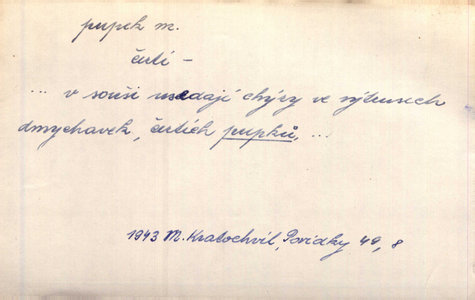 pupek m.
čertí –
... v souši usedají chýry ve výtrusech
dmychavek, čertích pupků, ...
1943 M. Kratochvil, Povídky 49, 8